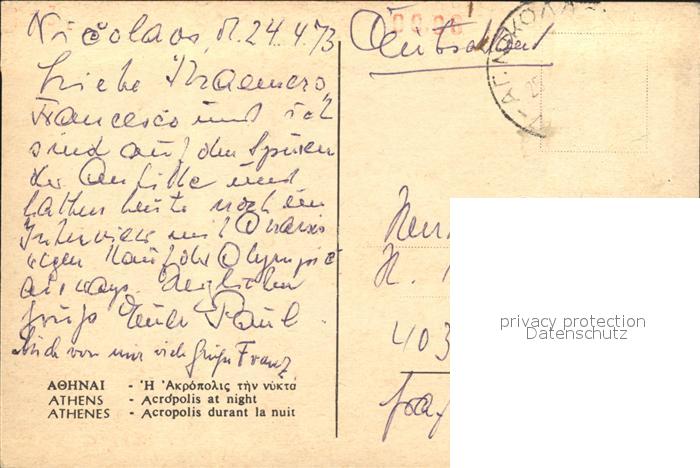 Nicolaos, d. 24.4.73
Liebe Kraemers,
Francesco und ich
sind auf den Spuren
der Antike und
hatten heute noch ein
Interview mit Onassis
wegen Kauf der Olympic
airways. Herzliche
Grüße Euer Paul
Auch von mir viele Grüße Franz
ΑΘΗΝΑΙ - Ἡ Ἀκρόπολις τὴν νύκτα
ATHENS - Acropolis at night
ATHENES - Acropolis durant la nuit
Deutschland
H.
403
privacy protection
Datenschutz